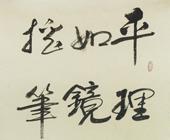 平理
如鏡
筆